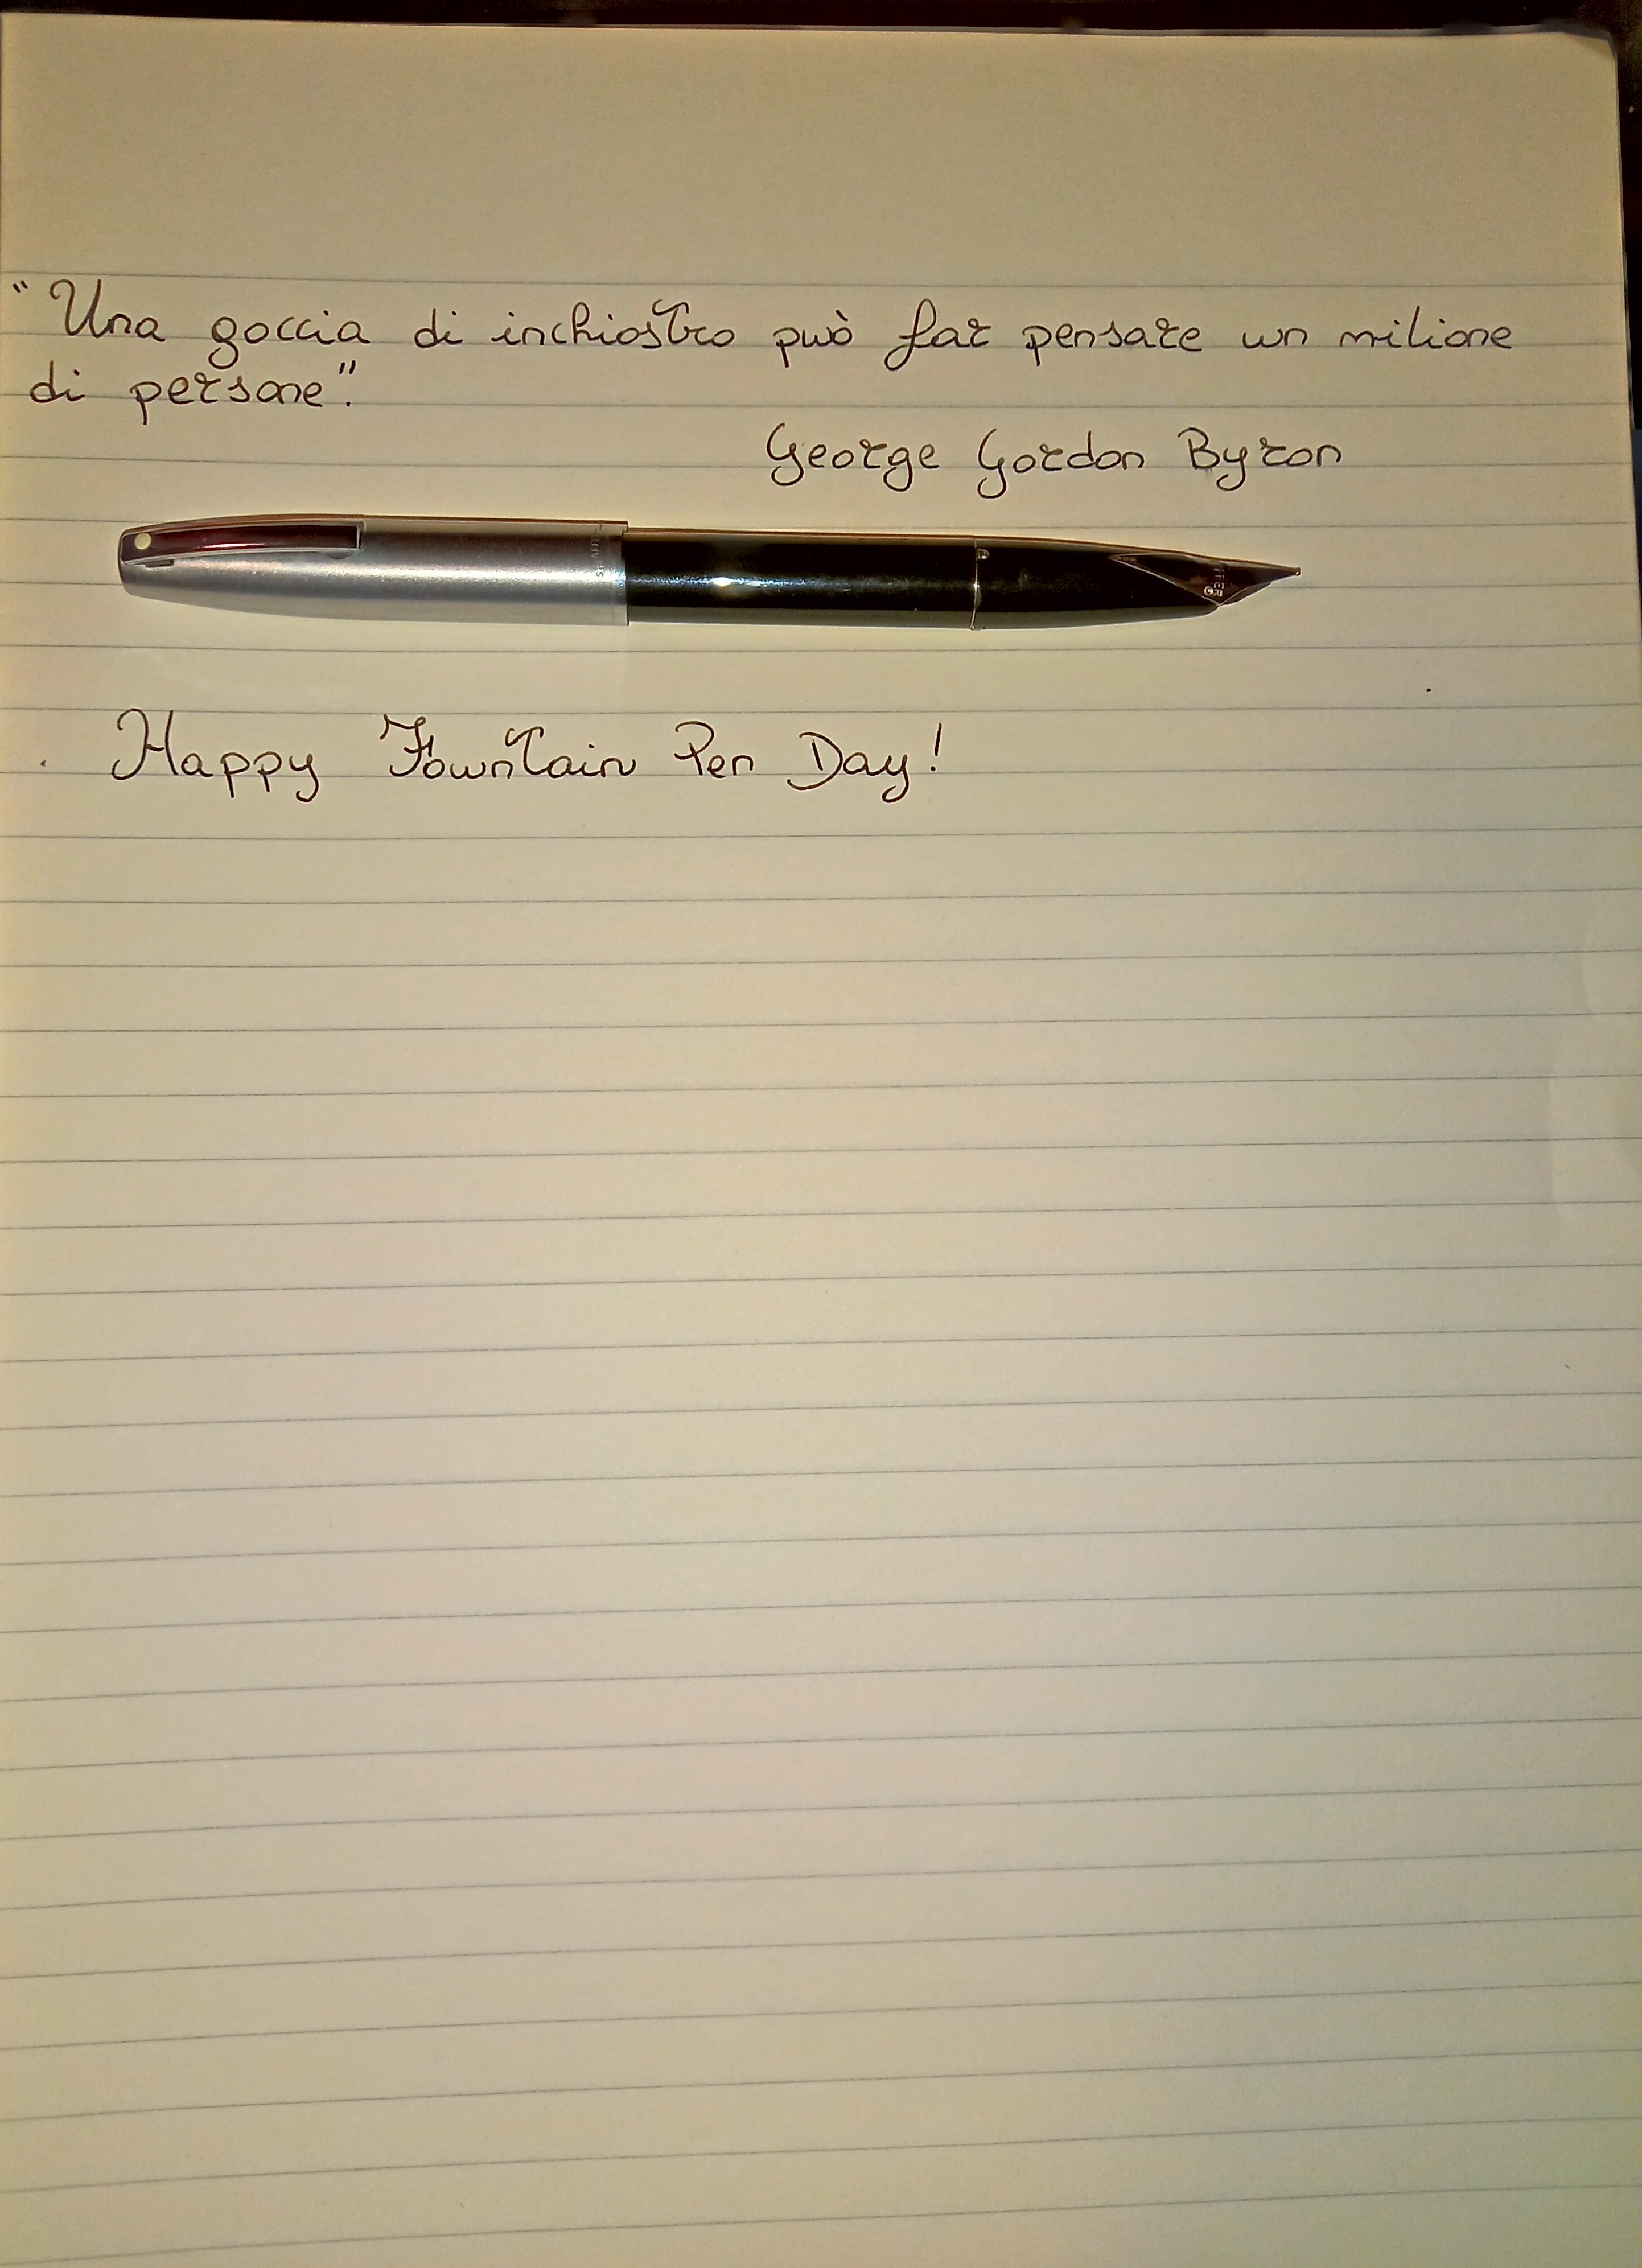 "Una goccia di inchiostro può far pensare un milione
di persone".
George Gordon Byron
Happy Fountain Pen Day!